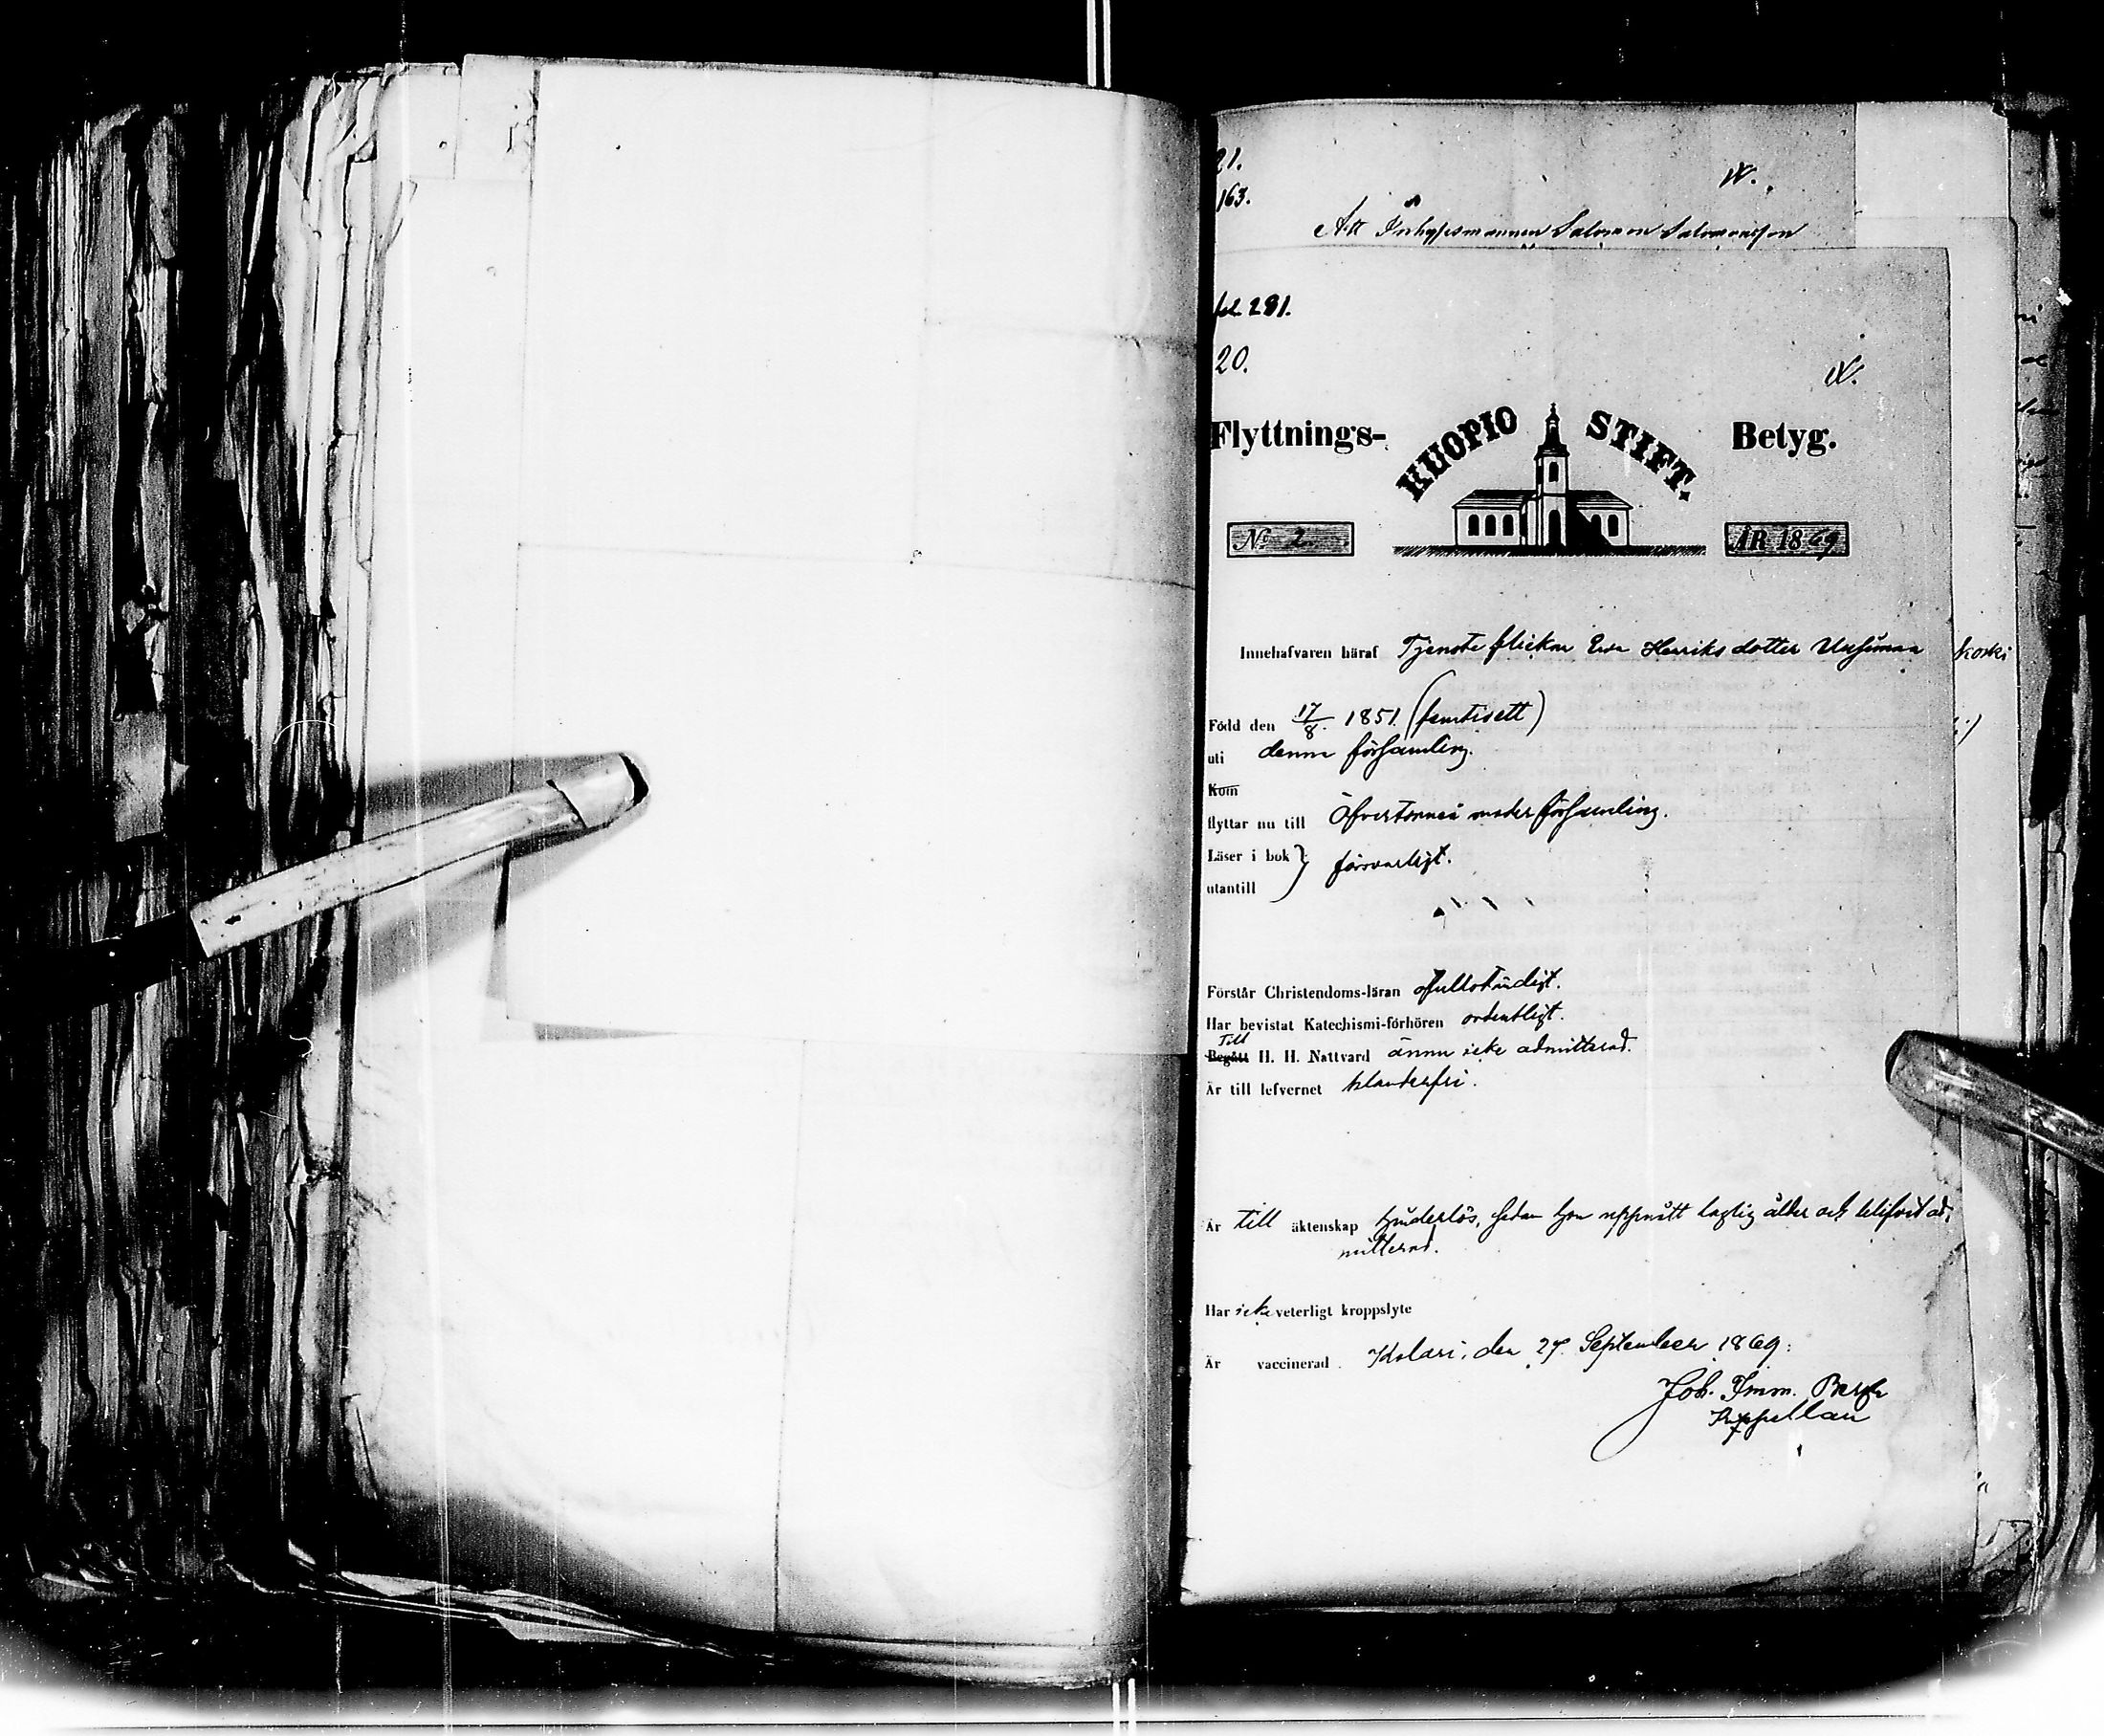 21.
163.
N.
Att Inhysesmannen Salomon Salomonsson
fol. 281.
20.
N.
Flyttnings- KUOPIO STIFT. Betyg.
No 2. ÅR 1869
Innehafvaren häraf Tjenste flickan Eva Henriksdotter Uusimaa
koski
Född den 17/8. 1851. (femtioett)
uti denna församling.
Kom
flyttar nu till Öfvertorneå moderförsamling.
Läser i bok } försvarligt.
utantill
Förstår Christendoms-läran ofullständigt.
Har bevistat Katechismi-förhören ordentligt.
Till
Begått H. H. Nattvard ännu icke admitterad.
Är till lefvernet klanderfri.
Är till äktenskap hinderlös, sedan hon uppnått laglig ålder och blifvit ad-
mitterad.
Har icke veterligt kroppslyte
Är vaccinerad. Kolari, den 27. September 1869:
Joh. Imm. Bergh
Kappellan